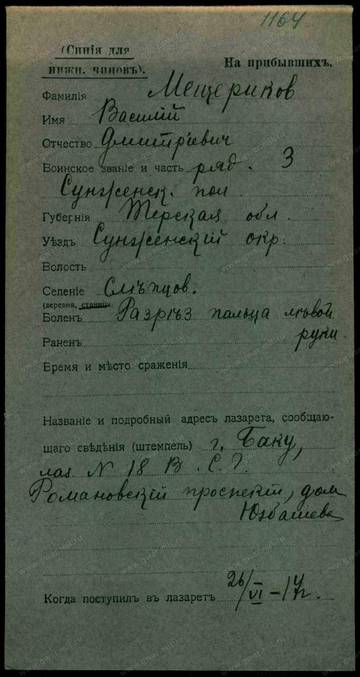 1164
(Синія для
нижн. чиновъ).
На прибывшихъ.
Фамилія Мещериков
Имя Василий
Отчество Дмитріевич
Воинское званіе и часть ряд. 3
Сунженск. пол.
Губернія Терская обл.
Уѣздъ Сунженский окр.
Волость
Селеніе Слѣпцов.
(деревня, станица)
Боленъ Разрѣз пальца лѣвой
руки.
Раненъ
Время и мѣсто сраженія
Названіе и подробный адресъ лазарета, сообщаю-
щаго свѣдѣнія (штемпель) г. Баку,
лаз N 18 В. С. Г.
Романовскій проспект, дом
Юзбашева
Когда поступилъ въ лазаретъ 26/VI – 17 г.